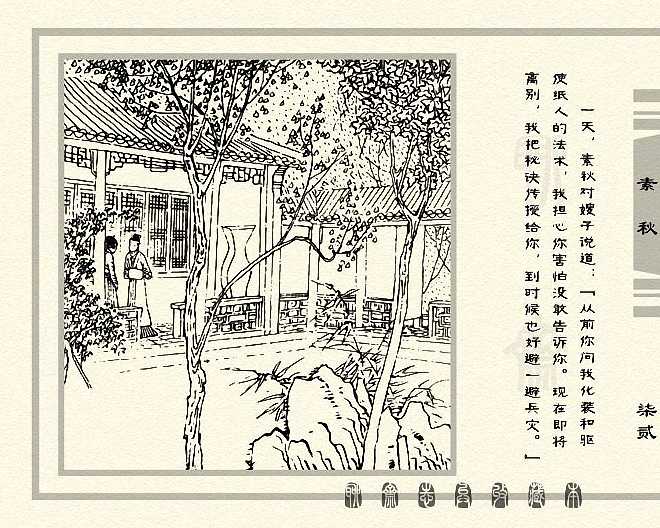 一天，素秋对嫂子说道：「从前你问我化装和驱
使纸人的法术，我担心你害怕没敢告诉你。现在即将
离别，我把秘诀传授给你，到时候也好避一避兵灾。」
素秋
柒贰